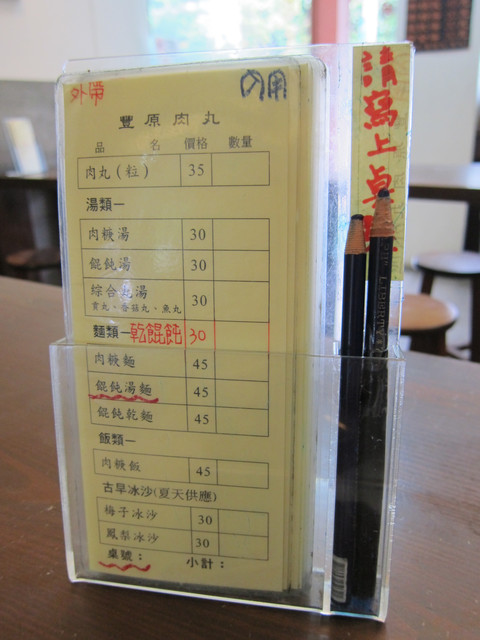 外帶 內用
豐原肉丸
品名 價格 數量
肉丸(粒) 35
湯類—
肉羹湯 30
餛飩湯 30
綜合丸湯 30
貢丸、香菇丸、魚丸
麵類—乾餛飩 30
肉羹麵 45
餛飩湯麵 45
餛飩乾麵 45
飯類—
肉羹飯 45
古早冰沙(夏天供應)
梅子冰沙 30
鳳梨冰沙 30
桌號: 小計:
請寫上桌號
LIBERTY